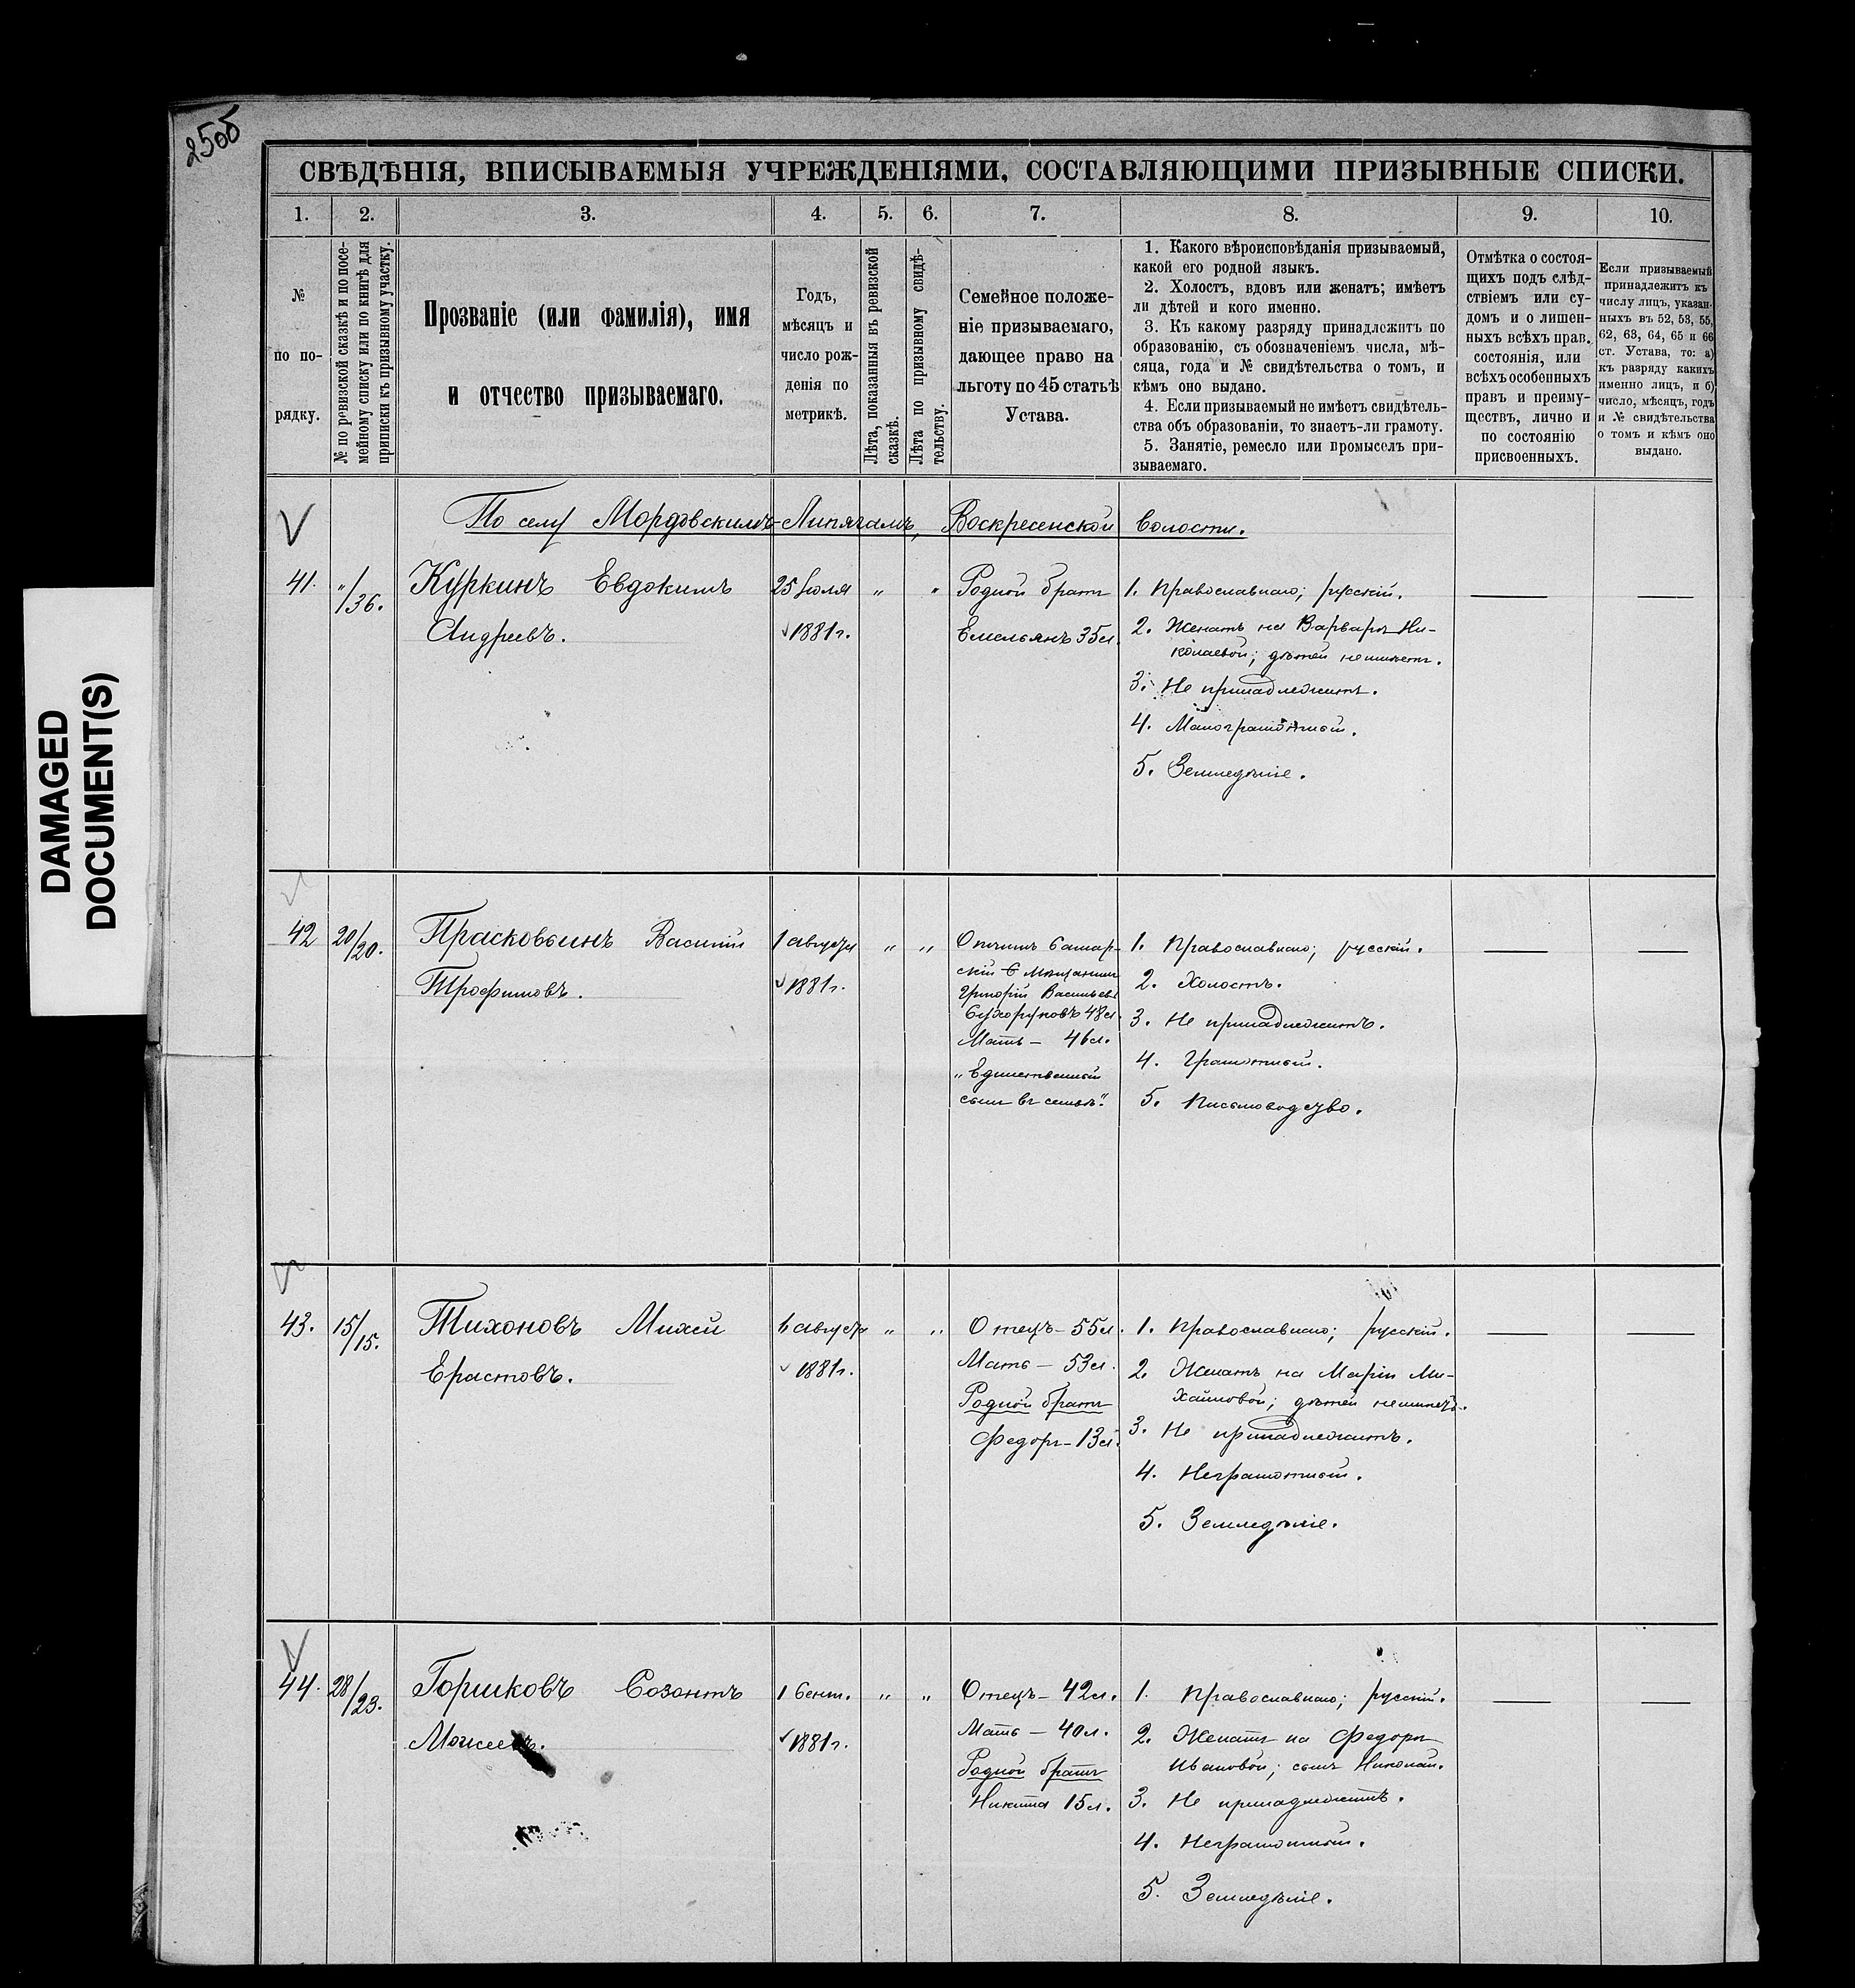 250б
DAMAGED
DOCUMENT(S)
СВѢДѢНІЯ, ВПИСЫВАЕМЫЯ УЧРЕЖДЕНІЯМИ, СОСТАВЛЯЮЩИМИ ПРИЗЫВНЫЕ СПИСКИ.
1. 2. 3. 4. 5. 6. 7. 8. 9. 10.
№
по по-
рядку.
№ по ревизской сказкѣ и по посе-
мейному списку или по книгѣ для
приписки къ призывному участку.
Прозваніе (или фамилія), имя
и отчество призываемаго.
Годъ,
мѣсяцъ и
число рож-
денія по
метрикѣ.
Лѣта, показанныя въ ревизской
сказкѣ.
Лѣта по призывному свидѣ-
тельству.
Семейное положе-
ніе призываемаго,
дающее право на
льготу по 45 статьѣ
Устава.
1. Какого вѣроисповѣданія призываемый,
какой его родной языкъ.
2. Холостъ, вдовъ или женатъ; имѣетъ
ли дѣтей и кого именно.
3. Къ какому разряду принадлежитъ по
образованію, съ обозначеніемъ числа, мѣ-
сяца, года и № свидѣтельства о томъ, и
кѣмъ оно выдано.
4. Если призываемый не имѣетъ свидѣтель-
ства объ образованіи, то знаетъ-ли грамоту.
5. Занятіе, ремесло или промыселъ при-
зываемаго.
Отмѣтка о состоя-
щихъ подъ слѣд-
ствіемъ или су-
домъ и о лишен-
ныхъ всѣхъ прав.
состоянія, или
всѣхъ особенныхъ
правъ и преиму-
ществъ, лично и
по состоянію
присвоенныхъ.
Если призываемый
принадлежитъ къ
числу лицъ, указан-
ныхъ въ 52, 53, 55,
62, 63, 64, 65 и 66
ст. Устава, то: а)
къ разряду какихъ
именно лицъ, и б)
число, мѣсяцъ, годъ
и № свидѣтельства
о томъ и кѣмъ оно
выдано.
По селу Мордовскимъ-Липягамъ, Воскресенской волости.
41. "/36.
Куркинъ Евдокимъ
Андреевъ.
25 Іюля
1881г.
" "
Родной братъ
Емельянъ 35л.
1. Православнаго; русскій.
2. Женатъ на Варварѣ Ни-
колаевой; дѣтей неимѣетъ.
3. Не принадлежитъ.
4. Малограмотный.
5. Земледѣліе.
42 20/20.
Прасковьинъ Василій
Трофимовъ.
1 августа
1881г.
" "
Отчимъ Самар-
скій мѣщанинъ
Григорій Васильевъ
Сухоруковъ 48л.
Мать — 46л.
"Единственный
сынъ въ семьѣ."
1. Православнаго; русскій.
2. Холостъ.
3. Не принадлежитъ.
4. Грамотный.
5. Письмоводство.
43. 15/15.
Тихоновъ Михей
Ерастовъ.
6 августа
1881г.
" "
Отецъ — 55л.
Мать — 53л.
Родной братъ
Федоръ — 13л.
1. Православнаго; русскій.
2. Женатъ на Маріи Ми-
хайловой; дѣтей неимѣетъ.
3. Не принадлежитъ.
4. Неграмотный.
5. Земледѣліе.
44. 28/23.
Горшковъ Созонтъ
Моисеевъ.
1 Сент.
1881г.
" "
Отецъ — 42л.
Мать — 40л.
Родной братъ
Никита 15л.
1. Православнаго; русскій.
2. Женатъ на Федорѣ
Ивановой; сынъ Николай.
3. Не принадлежитъ.
4. Неграмотный.
5. Земледѣліе.